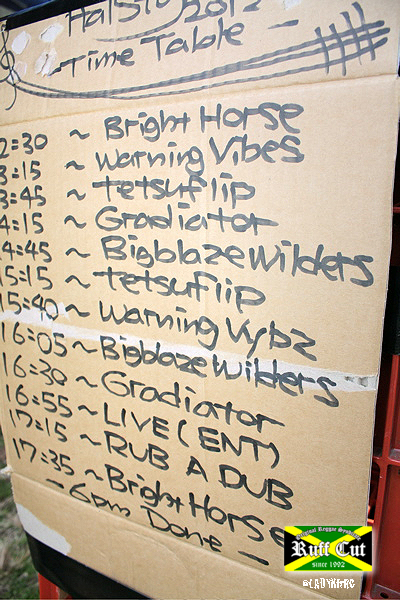 2012
Time Table
2:30 ~ Bright Horse
3:15 ~ Warning Vibes
3:45 ~ Tetsuflip
4:15 ~ Gradiator
4:45 ~ Bigblaze Wilders
15:15 ~ Tetsuflip
15:40 ~ Warning Vybz
16:05 ~ Bigblaze Wilders
16:30 ~ Gradiator
16:55 ~ LIVE (ENT)
17:15 ~ RUB A DUB
17:35 ~ Bright Horse
- 6pm Done -
Original Reggae
Ruff Cut
Since 1992